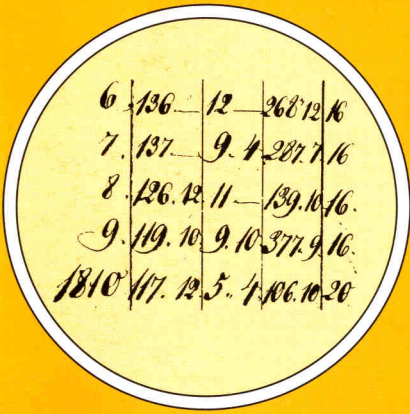 6. 136 — 12 — 268 12 16
7. 137 — 9. 4 287. 7 16
8. 126. 12 11 — 139. 10 16.
9. 119. 10 9. 10 377. 9 16.
1810 117. 12. 5. 4 106. 10 20